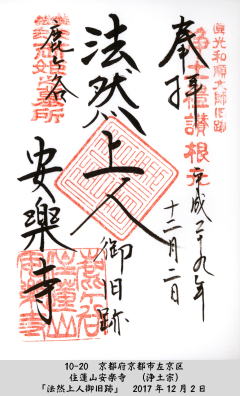 奉拝
圓光和順大師旧跡
浄土礼讃根元
平成二十九年
十二月二日
法然上人
御旧跡
鹿ヶ谷
安樂寺
10-20 京都府京都市左京区
住蓮山安楽寺 (浄土宗)
「法然上人御旧跡」 2017年12月2日